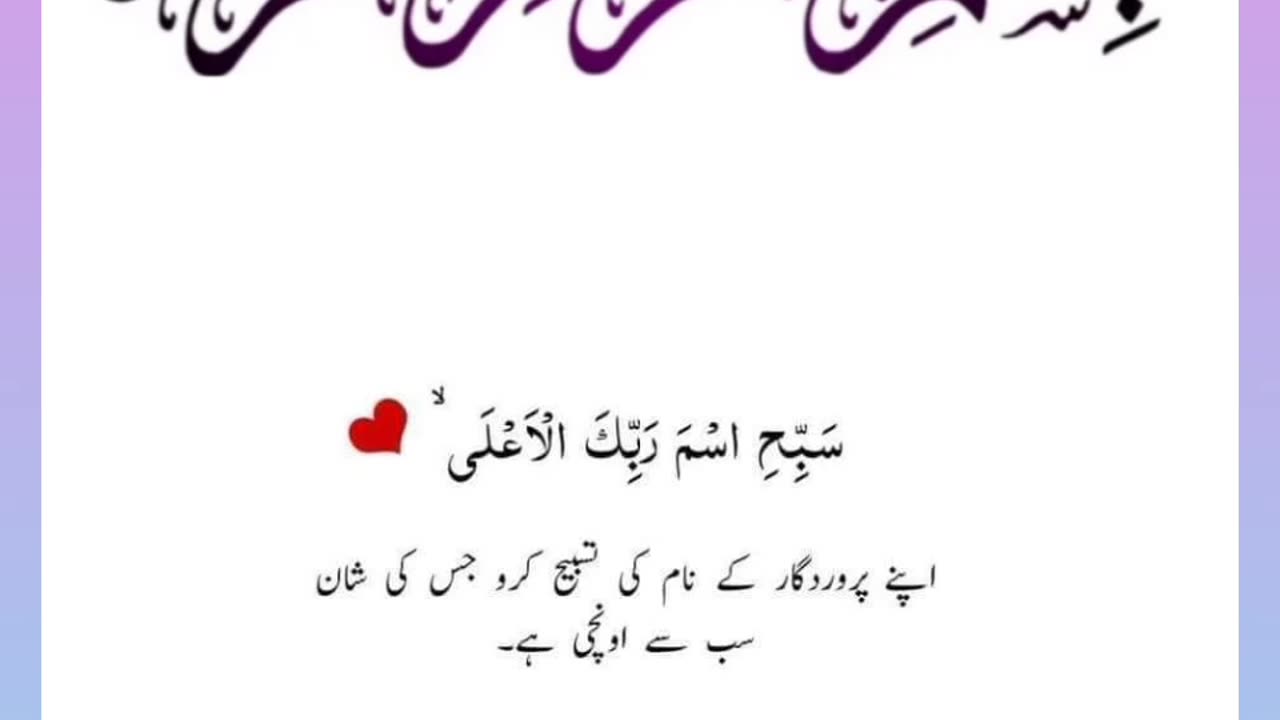 سَبِّحِ اسْمَ رَبِّكَ الْاَعْلَى ۙ
اپنے پروردگار کے نام کی تسبیح کرو جس کی شان
سب سے اونچی ہے۔